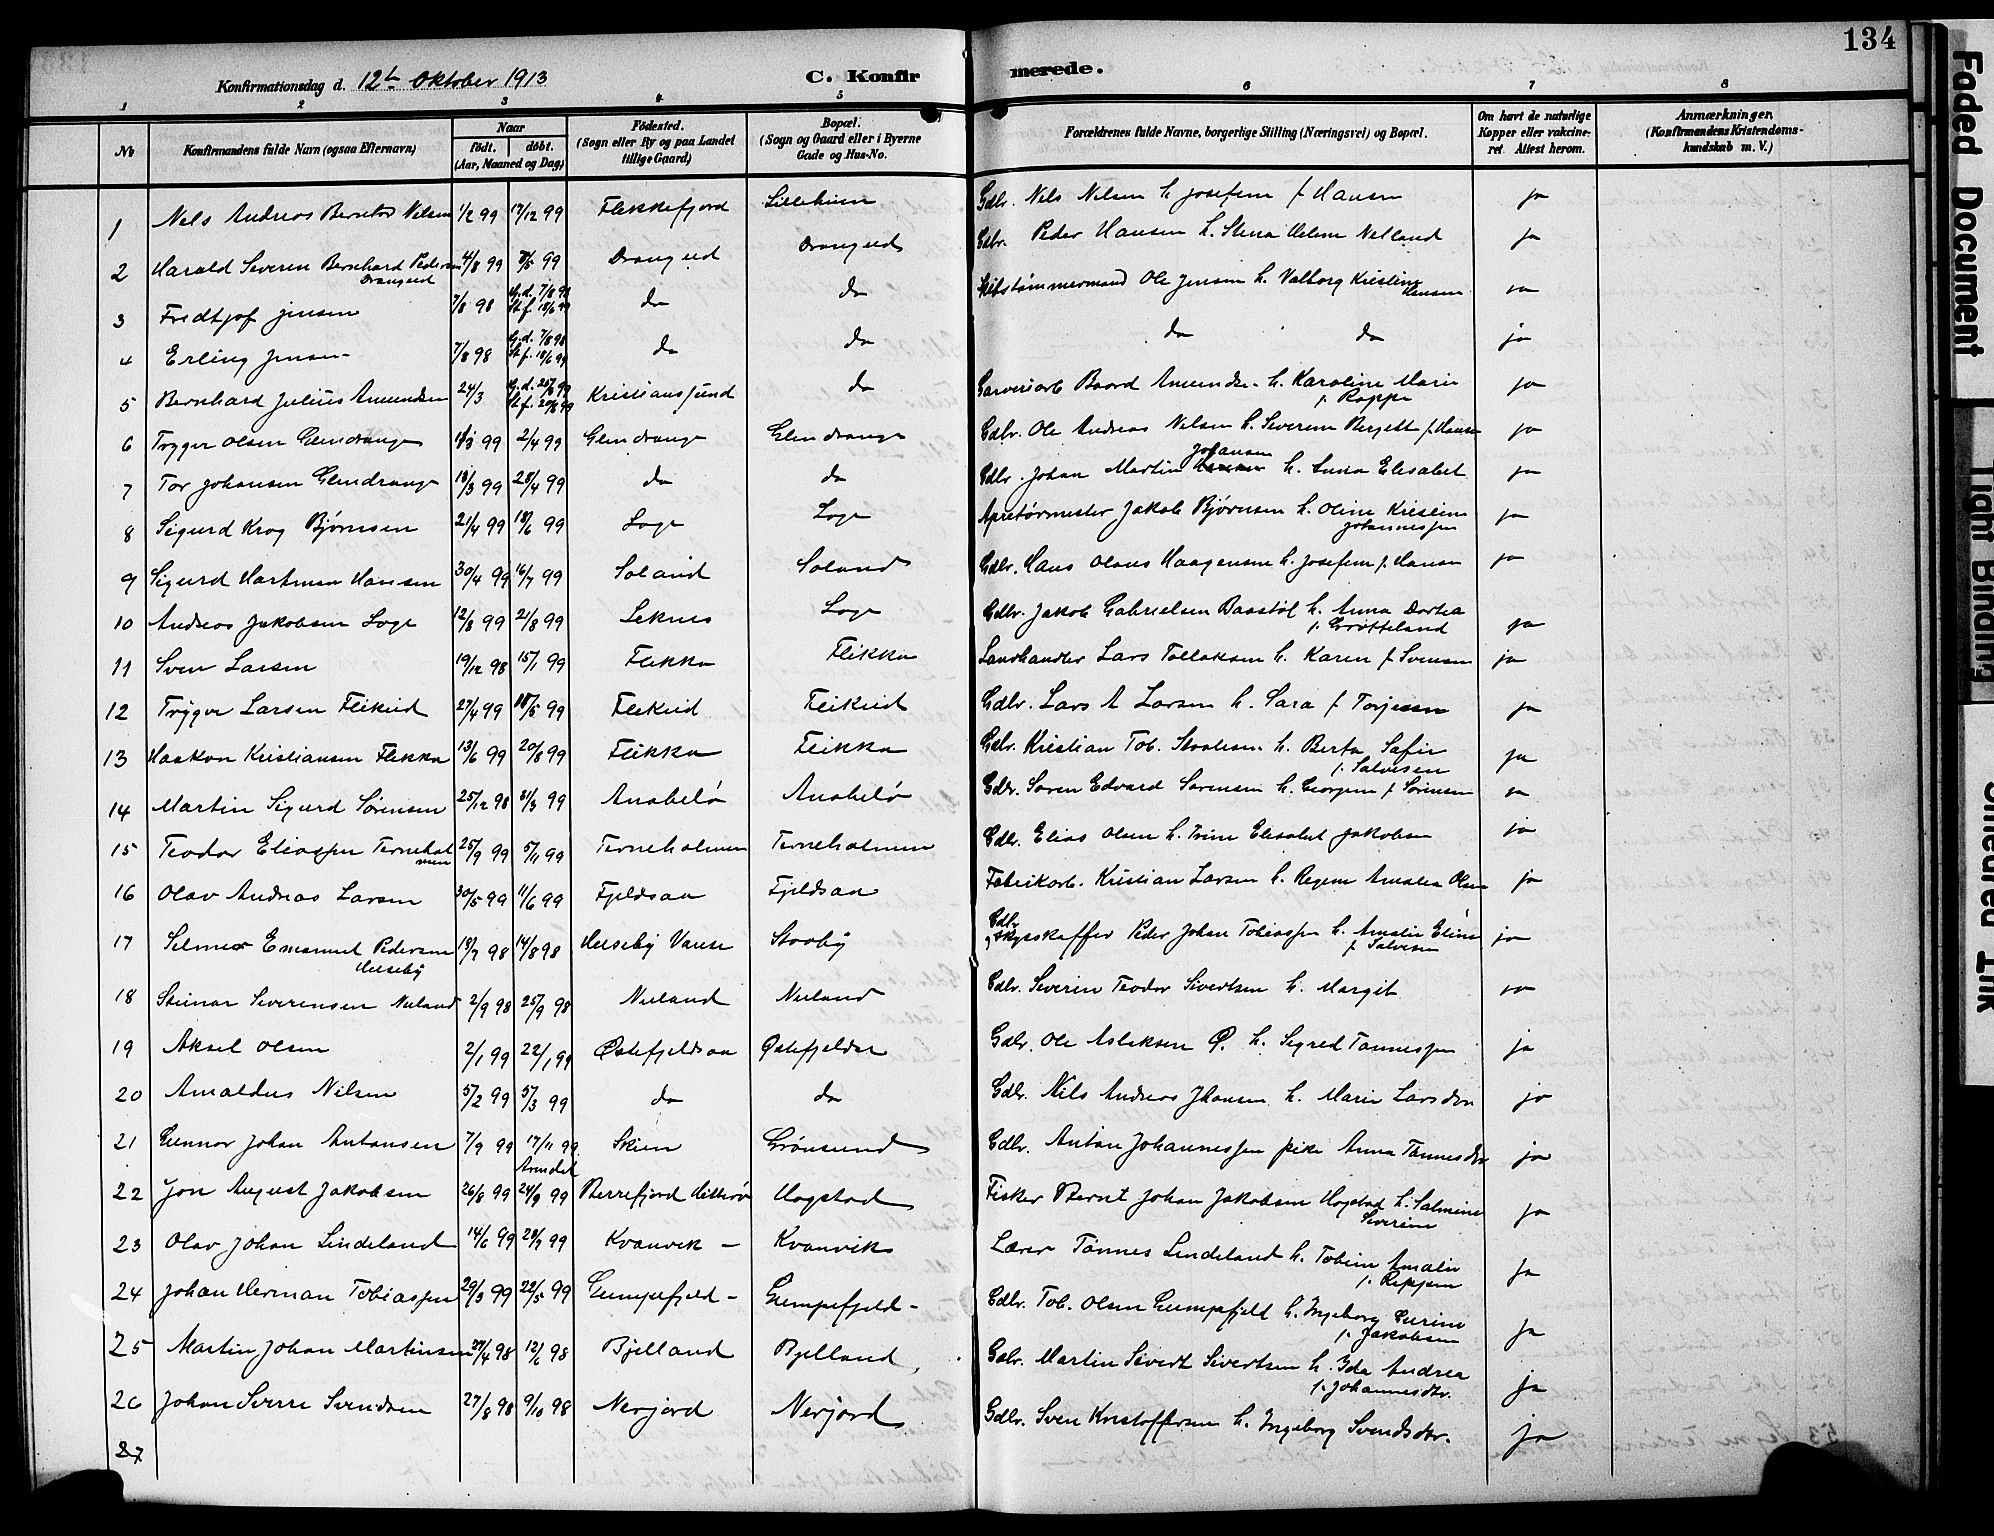 134
Konfirmationsdag d. 12te Oktober 1913
C. Konfirmerede.
1 2 3 4 5 6 7 8
No
Konfirmandens fulde Navn (ogsaa Efternavn)
Naar
født. døbt.
(Aar, Maaned og Dag)
Fødested.
(Sogn eller By og paa Landet
tillige Gaard)
Bopæl.
(Sogn og Gaard eller i Byerne
Gade og Hus-No.
Forældrenes fulde Navne, borgerlige Stilling (Næringsvei) og Bopæl.
Om havt de naturlige
Kopper eller vakcine-
ret. Attest herom.
Anmærkninger.
(Konfirmandens Kristendoms-
kundskab m. V.)
1 Nels Andreas Berntod Nilsen 1/2 99 17/12 99 Flekkefjord Lilleheien Gdbr. Nils Nilsen h. Josefine f Hansen ja
2 Harald Severin Bernhard Pedersen 4/8 99 99 Drangeid Drangeid Gdbr. Peder Hansen h. Stina Helene Nelland ja
Drangeid
3 Fredtjof Jensen 7/8 98 G.d. 7/8 98 St.f. 18/6 99 do do Skibstømmermand Ole Jensen h. Valborg Kristine Hansen ja
4 Erling Jensen 7/8 98 G.d. 7/8 98 St.f. 18/6 99 do do do do ja
5 Bernhard Julius Amundsen 24/3 G.d. 99 St.f. 99 Kristianssund do Garveriarb Baard Amundsen h. Karoline Marie ja
f. Rappe
6 Trygve Olsen Glendrange 99 2/4 99 Glendrange Glendrange Gdbr. Ole Andreas Nilsen h. Severine Bergett f Hansen ja
7 Tor Johansen Glendrange 18/3 99 28/4 99 do do Gdbr. Johan Martin Johansen h. Anna Elisabet ja
8 Sigurd Krog Bjørnsen 21/4 99 18/6 99 Loge Loge Apretørmester Jakob Bjørnsen h. Oline Kristine ja
Johannessen
9 Sigurd Hartman Hansen 30/4 99 16/7 99 Soland Soland Gdbr. Hans Olaus Haagensen h. Josefine f. Hansen ja
10 Andreas Jakobsen Loge 12/8 99 21/8 99 Leknes Loge Gdbr. Jakob Gabrielsen Baastøl h. Anna Dortea ja
f. Grøtteland
11 Sven Larsen 19/12 98 15/1 99 Flikka Flikka Landhandler Lars Tollaksen h. Karen f Svensen ja
12 Trygve Larsen Fleikeid 27/4 99 18/5 99 Fleikeid Fleikeid Gdbr. Lars A Larsen h. Sara f Torjesen ja
13 Haakon Kristiansen Flikka 13/6 99 20/8 99 Flikka Flikka Gdbr. Kristian Tob. Staalesen h. Berta Sofie ja
f. Salvesen
14 Martin Sigurd Sørensen 25/12 98 99 Anabelø Anabelø Gdbr. Søren Edvard Sørensen h. Georgine f Sørensen ja
15 Teodor Eliassen Terneholmen 25/9 99 5/11 99 Terneholmen Terneholmen Gdbr. Elias Olsen h. Trine Elisabet Jakobsen ja
16 Olav Andreas Larsen 30/5 99 11/6 99 Fjeldsaa Fjeldsaa Fabrikarb. Kristian Larsen h. Regine Amalia Olsen ja
17 Selmer Emanuel Pedersen 13/7 98 14/8 98 Huseby Vanse Staaby Gdbr. og Skysskaffer Peder Johan Tobiassen h. Amalie Eline ja
Huseby f Salvesen
18 Steinar Severinsen Nuland 2/9 98 25/9 98 Nuland Nuland Gdbr. Severin Teodor Sivertsen h. Margit ja
19 Aksel Olsen 2/1 99 22/1 99 Østefjeldsaa Østefjeldsa Gdbr. Ole Aslaksen Ø. h. Sigred Tønnessen ja
20 Arnaldus Nilsen 5/2 99 5/3 99 do do Gdbr. Nils Andreas Jhansen h. Marie Larsdtr ja
21 Gunnar Johan Antonsen 7/9 99 17/11 99 Skien Grønsund Gdbr. Anton Johannessen pike Anna Tønnesdtr ja
Arendal
22 Jon August Jakobsen 26/8 99 24/9 99 Berrefjord Hitterø Hogstad Fisker Bernt Johan Jakobsen Hogstad h. Salmine ja
Severine
23 Olav Johan Lindeland 14/6 99 28/7 99 Kvanvik - Kvanvik Lærer Tønnes Lindeland h. Tobine Amalie ja
f. Reppen
24 Johan Herman Tobiassen 29/3 99 22/5 99 Gumpefjeld - Gumpefjeld - Gdbr. Tob. Olsen Gumpefjeld h. Ingeborg Gurine ja
f. Jakobsen
25 Martin Johan Martinsen 98 12/6 98 Bjelland Bjelland Gdbr. Martin Sivert Sivertsen h. Ida Andrea ja
f. Johannesdtr.
26 Johan Sverre Svendsen 27/8 98 9/10 98 Nerjord Nerjord Gdbr. Sven Kristoffersen h. Ingeborg Svendsdtr. ja
27
Faded Document
Tight Binding
Smeared Ink